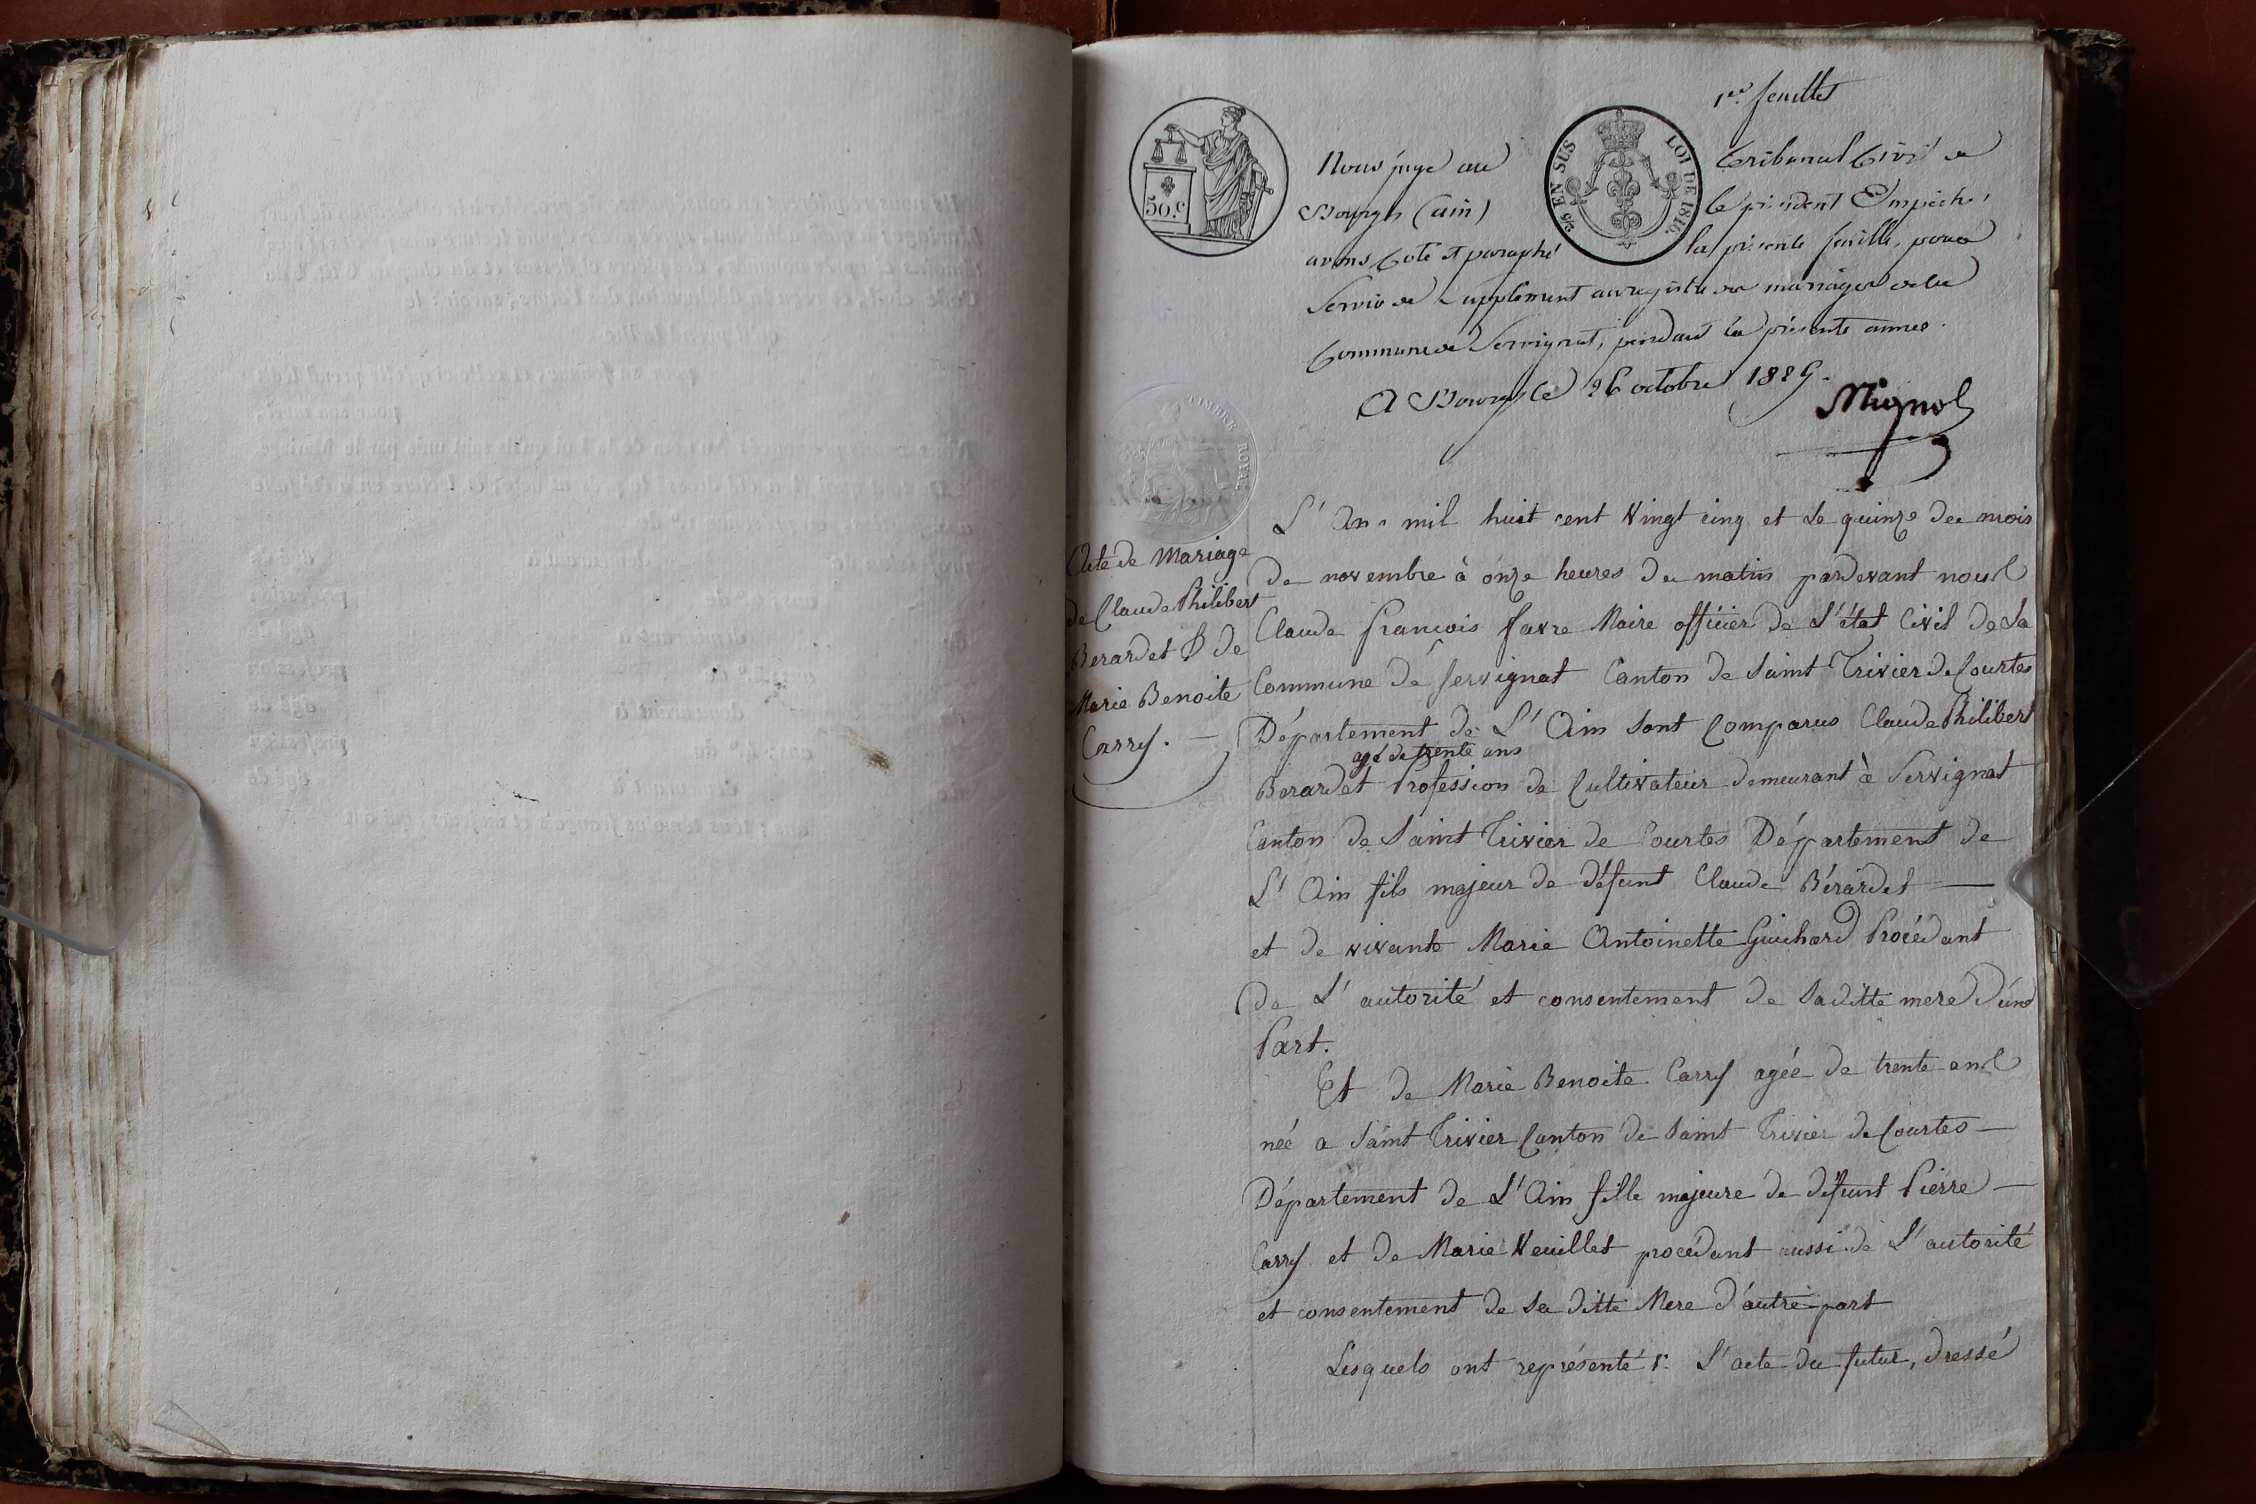 1er feuillet
Nous juge au Tribunal Civil de
Bourg (ain) le président Empêché,
avons Coté et paraphé la présente feuille, pour
Servir de Supplement au registre de mariages de la
Commune de Servignat, pendant la présente année.
A Bourg le 26 octobre 1825.
Mignol
50.c
2/5 EN SUS LOI DE 1816.
TIMBRE ROYAL
Acte de Mariage
de Claude Philibert
Berardet & de
Marie Benoite
Carry. —
L'An mil huit cent Vingt cinq et Le quinze du mois
de novembre à onze heures du matin pardevant nous
Claude françois favre Maire officier de L'état Civil de La
Commune de Servignat Canton de Saint Trivier de Courtes
Département de L'Ain Sont Comparus Claude Philibert
agé de trente ans
Berardet Profession de Cultivateur demeurant à Servignat
Canton de Saint Trivier de Courtes Département de
L'Ain fils majeur de défunt Claude Bérardet —
et de vivante Marie Antoinette Guichard Procédant
de L'autorité et consentement de Saditte mere D'une
Part.
Et de Marie Benoite Carry agée de trente ans
née a Saint Trivier Canton de Saint Trivier de Courtes —
Département de L'Ain fille majeure de défunt Pierre —
Carry et de Marie Veuillet procédant aussi de L'autorité
et consentement de Sa ditte Mere d'autre part
Lesquels ont représenté 1° L'acte du futur, dressé